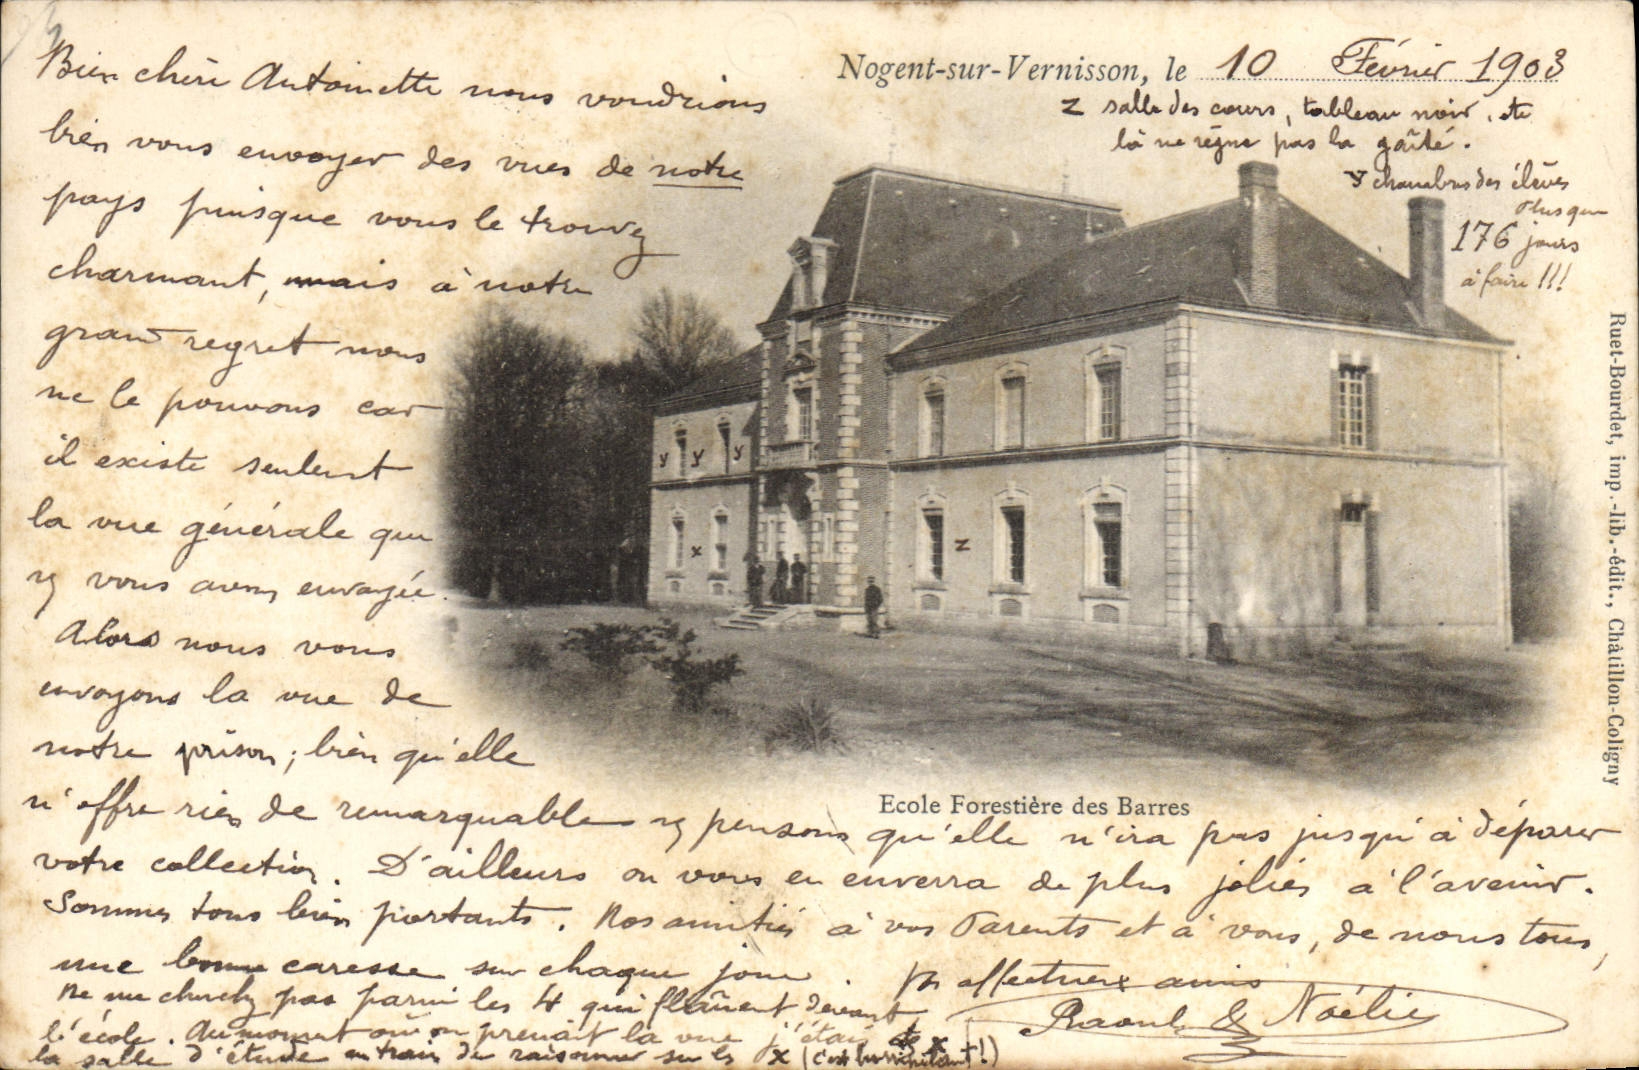 Nogent-sur-Vernisson, le 10 Février 1903
z salle des cours, tableau noir, etc
là ne règne pas la gaîté.
y chambres des élèves
Plus que
176 jours
à faire !!!
Bien chère Antoinette nous voudrions
bien vous envoyer des vues de notre
pays puisque vous le trouvez
charmant, mais à notre
grand regret nous
ne le pouvons car
il existe seulent
la vue générale que
ns vous avons envoyée.
Alors nous vous
envoyons la vue de
notre prison; bien qu'elle
n'offre rien de remarquable ns pensons qu'elle n'ira pas jusqu'à déparer
votre collection. D'ailleurs on vous en enverra de plus jolies à l'avenir.
Sommes tous bien portants. Nos amitiés à vos Parents et à vous, de nous tous,
une bonne caresse sur chaque joue. Vos affectueux amis
Raoul & Noélie
Ne me cherchez pas parmi les 4 qui flânent devant
l'école. Au moment où on prenait la vue j'étais x
la salle d'étude en train de raisonner sur les x (c'est !)
y y y
x
z
Ecole Forestière des Barres
Ruet-Bourdet, imp.-lib.-édit., Châtillon-Coligny